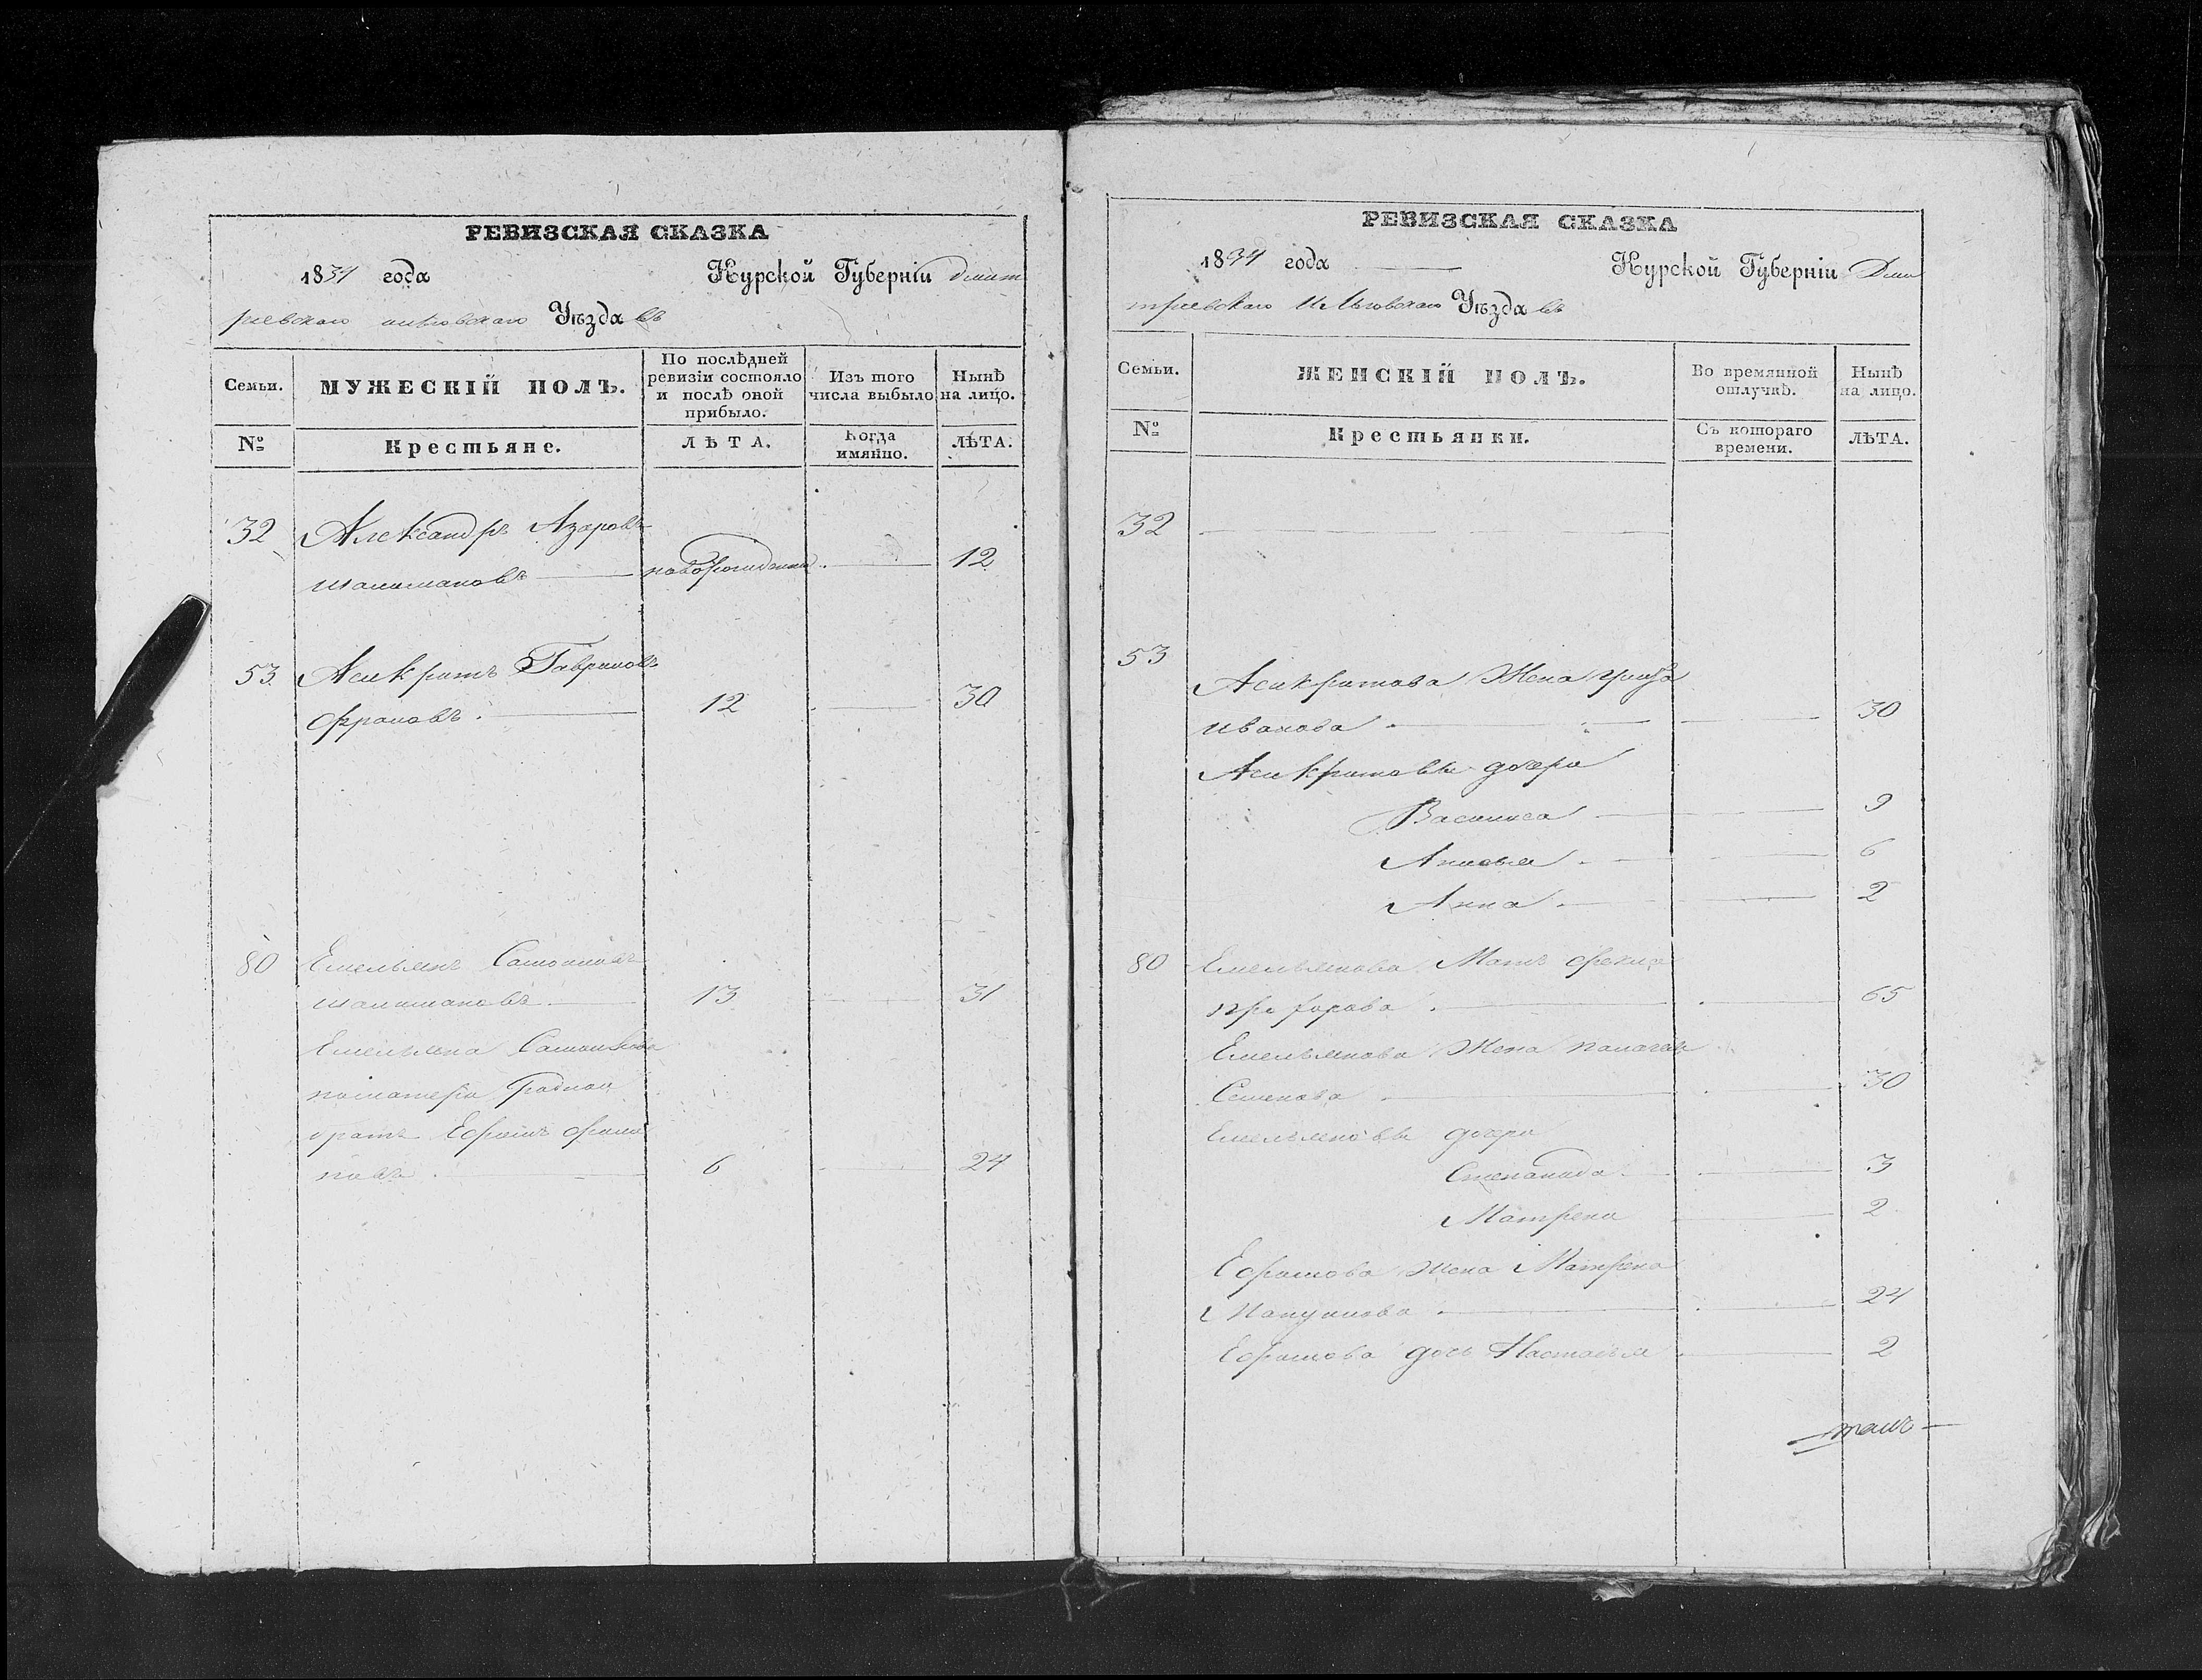 РЕВИЗСКАЯ СКАЗКА
1834 года Курской Губерніи Дмит
риевского Уѣзда въ
Семьи. МУЖЕСКІЙ ПОЛЪ. По послѣдней ревизіи состояло и послѣ оной прибыло. Изъ того числа выбыло Нынѣ на лицо.
№ Крестьяне. ЛѢТА. Когда имянно. ЛѢТА.
32 Александръ Азаровъ
новорожденной 12
53 Асикритъ Гавриловъ
12 30
80 Емельянъ
13 31
Емельяна
по матери родной
братъ Ефимъ
новъ 6 24
РЕВИЗСКАЯ СКАЗКА
1834 года Курской Губерніи Дми
триевского и Льговского Уѣзда въ
Семьи. ЖЕНСКІЙ ПОЛЪ. Во времянной отлучкѣ. Нынѣ на лицо.
№ Крестьянки. Съ котораго времени. ЛѢТА.
32
53
Асикритова Жена
Иванова 30
Асикритовы дочери
Василиса 9
Анисья 6
Анна 2
80 Емельянова Мать Фекла
65
Емельянова Жена Палагея
Семенова 30
Емельяновы дочери
Степанида 3
Матрена 2
Ефимова Жена Матрена
24
Ефимова дочь Настасья 2